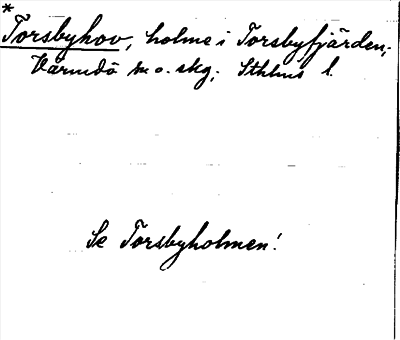 *
Torsbyhov, holme i Torsbyfjärden;
Värmdö m.o. skg; Sthlms l.
Se Torsbyholmen!